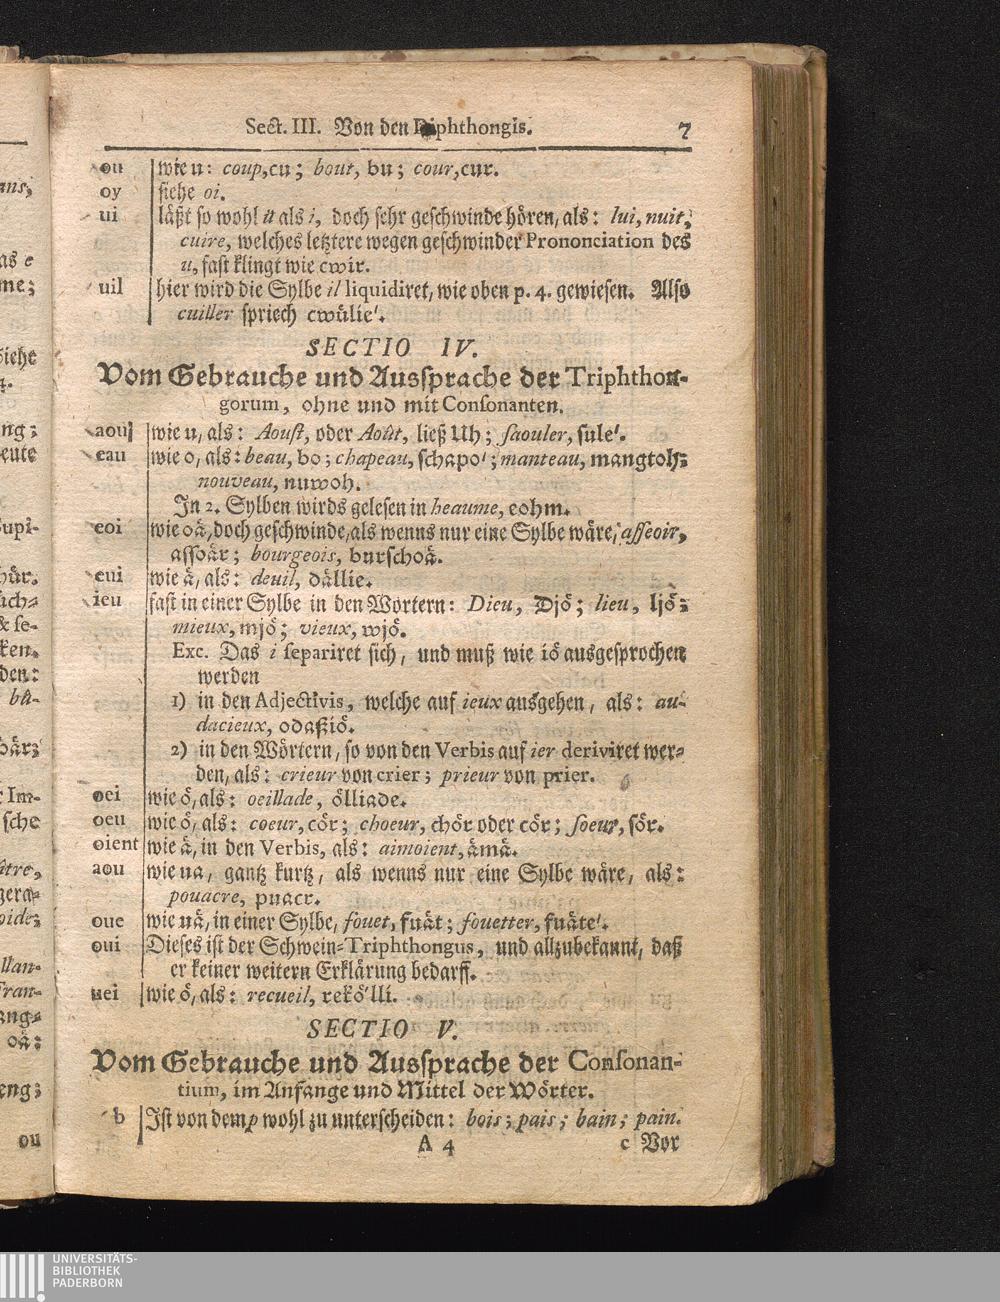 Sect. III. Von den Diphthongis. 7
ou wie u: coup, cu; bout, bu; cour, cur.
oy siehe oi.
ui läßt so wohl ü als i, doch sehr geschwinde hören, als: lui, nuit,
cuire, welches letztere wegen geschwinder Prononciation des
u, fast klingt wie cwir.
uil hier wird die Sylbe il liquidiret, wie oben p. 4. gewiesen. Also
cuiller spriech cwülie'.
SECTIO IV.
Vom Gebrauche und Aussprache der Triphthon-
gorum, ohne und mit Consonanten.
aou wie u, als: Aoust, oder Août, ließ Uh; saouler, sule'.
eau wie o, als: beau, bo; chapeau, schapo'; manteau, mangtoh;
nouveau, nuwoh.
In 2. Sylben wirds gelesen in heaume, eohm.
eoi wie oä, doch geschwinde, als wenns nur eine Sylbe wäre, asseoir,
assoär; bourgeois, burschoä.
eui wie ä, als: deuil, dällie.
ieu fast in einer Sylbe in den Wörtern: Dieu, Djö; lieu, ljö;
mieux, mjö; vieux, wjö.
Exc. Das i separiret sich, und muß wie iö ausgesprochen
werden
1) in den Adjectivis, welche auf ieux ausgehen, als: au-
dacieux, odaßiö.
2) in den Wörtern, so von den Verbis auf ier deriviret wer-
den, als: crieur von crier; prieur von prier.
oei wie ö, als: oeillade, ölliade.
oeu wie ö, als: coeur, cör; choeur, chör oder cör; soeur, sör.
oient wie ä, in den Verbis, als: aimoient, ämä.
aou wie ua, gantz kurtz, als wenns nur eine Sylbe wäre, als:
pouacre, puacr.
oue wie uä, in einer Sylbe, fouet, fuät; fouetter, fuäte'.
oui Dieses ist der Schwein-Triphthongus, und allzubekannt, daß
er keiner weitern Erklärung bedarff.
uei wie ö, als: recueil, rekö'lli.
SECTIO V.
Vom Gebrauche und Aussprache der Consonan-
tium, im Anfange und Mittel der Wörter.
b Ist von dem p wohl zu unterscheiden: bois; pais; bain; pain.
A 4 c Vor
UNIVERSITÄTS-
BIBLIOTHEK
PADERBORN